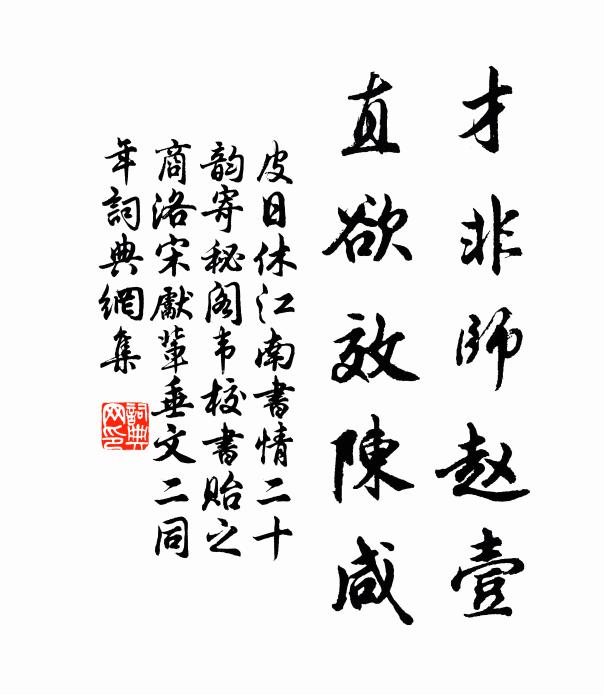 才非师赵壹
直欲效陳咸
皮日休江南書情二十
韵寄秘阁韦校書貽之
商洛宋獻輩垂文二同
年詞典網集
詞典网印